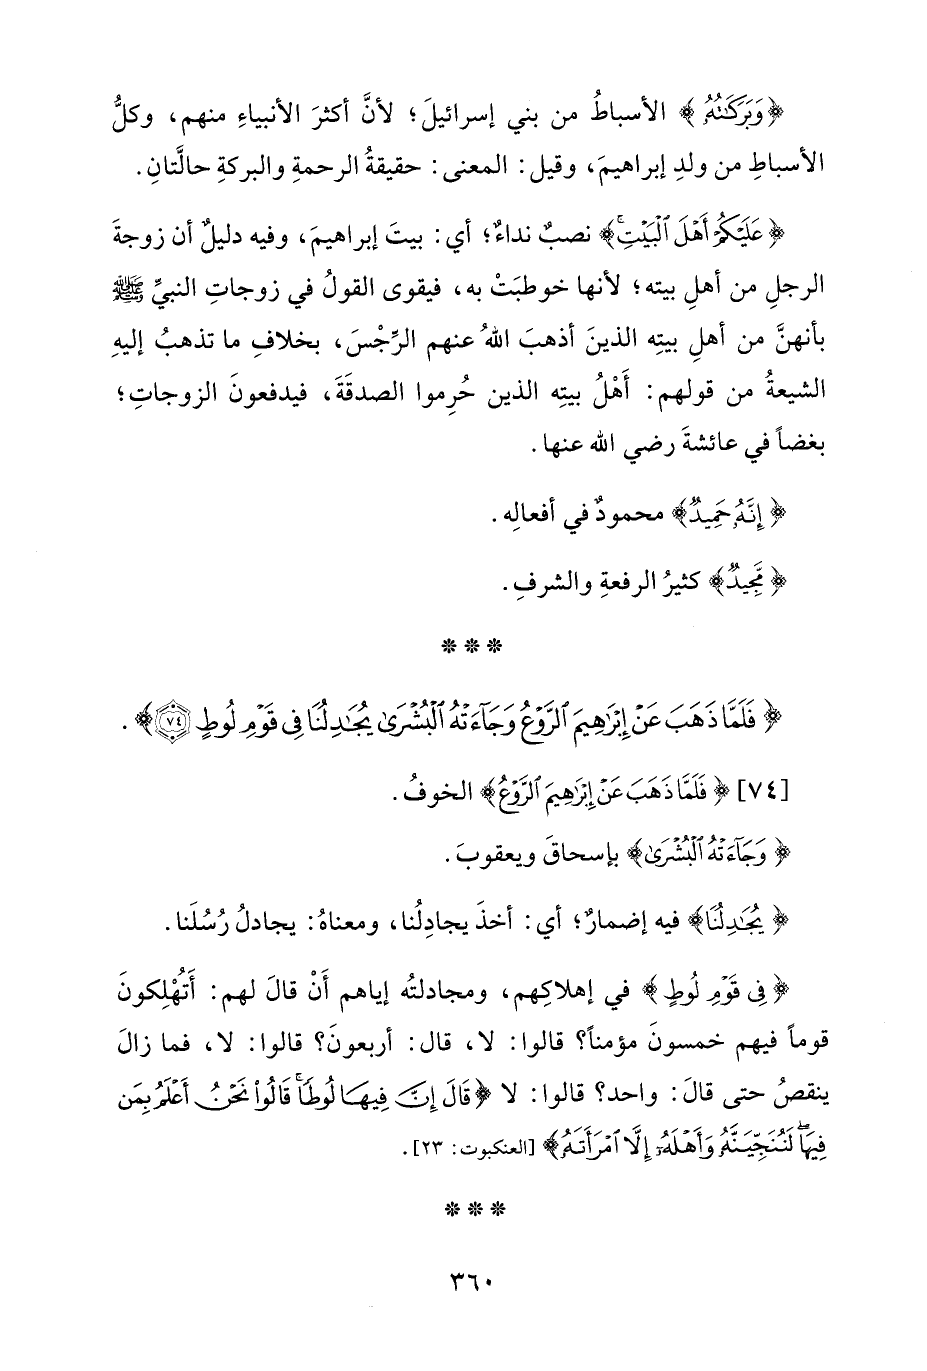 ﴿وَبَرَكَاتُهُ﴾ الأسباطُ من بني إسرائيلَ؛ لأنَّ أكثرَ الأنبياءِ منهم، وكلُّ
الأسباطِ من ولدِ إبراهيمَ، وقيل: المعنى: حقيقةُ الرحمةِ والبركةِ حالَّتانِ.
﴿عَلَيْكُمْ أَهْلَ ٱلْبَيْتِ﴾ نصبٌ نداءٌ؛ أي: بيتَ إبراهيمَ، وفيه دليلٌ أن زوجةَ
الرجلِ من أهلِ بيته؛ لأنها خوطبَتْ به، فيقوى القولُ في زوجاتِ النبيِّ ﷺ
بأنهنَّ من أهلِ بيتِه الذينَ أذهبَ اللهُ عنهم الرِّجْسَ، بخلافِ ما تذهبُ إليهِ
الشيعةُ من قولهم: أَهْلُ بيتِه الذين حُرِموا الصدقَةَ، فيدفعونَ الزوجاتِ؛
بغضاً في عائشةَ رضي الله عنها.
﴿إِنَّهُۥ حَمِيدٌ﴾ محمودٌ في أفعالِه.
﴿مَّجِيدٌ﴾ كثيرُ الرفعةِ والشرفِ.
* * *
﴿فَلَمَّا ذَهَبَ عَنْ إِبْرَٰهِيمَ ٱلرَّوْعُ وَجَآءَتْهُ ٱلْبُشْرَىٰ يُجَٰدِلُنَا فِى قَوْمِ لُوطٍ ﴿٧٤﴾﴾.
[٧٤] ﴿فَلَمَّا ذَهَبَ عَنْ إِبْرَٰهِيمَ ٱلرَّوْعُ﴾ الخوفُ.
﴿وَجَآءَتْهُ ٱلْبُشْرَىٰ﴾ بإسحاقَ ويعقوبَ.
﴿يُجَٰدِلُنَا﴾ فيه إضمارٌ؛ أي: أخذَ يجادِلُنا، ومعناهُ: يجادلُ رُسُلَنا.
﴿فِى قَوْمِ لُوطٍ﴾ في إهلاكِهم، ومجادلتُه إياهم أَنْ قالَ لهم: أَتُهْلِكونَ
قوماً فيهم خمسونَ مؤمناً؟ قالوا: لا، قال: أربعونَ؟ قالوا: لا، فما زالَ
ينقصُ حتى قالَ: واحد؟ قالوا: لا ﴿قَالَ إِنَّ فِيهَا لُوطًا ۚ قَالُوا۟ نَحْنُ أَعْلَمُ بِمَن
فِيهَا ۖ لَنُنَجِّيَنَّهُۥ وَأَهْلَهُۥٓ إِلَّا ٱمْرَأَتَهُۥ﴾ [العنكبوت: ٢٣].
* * *
٣٦٠